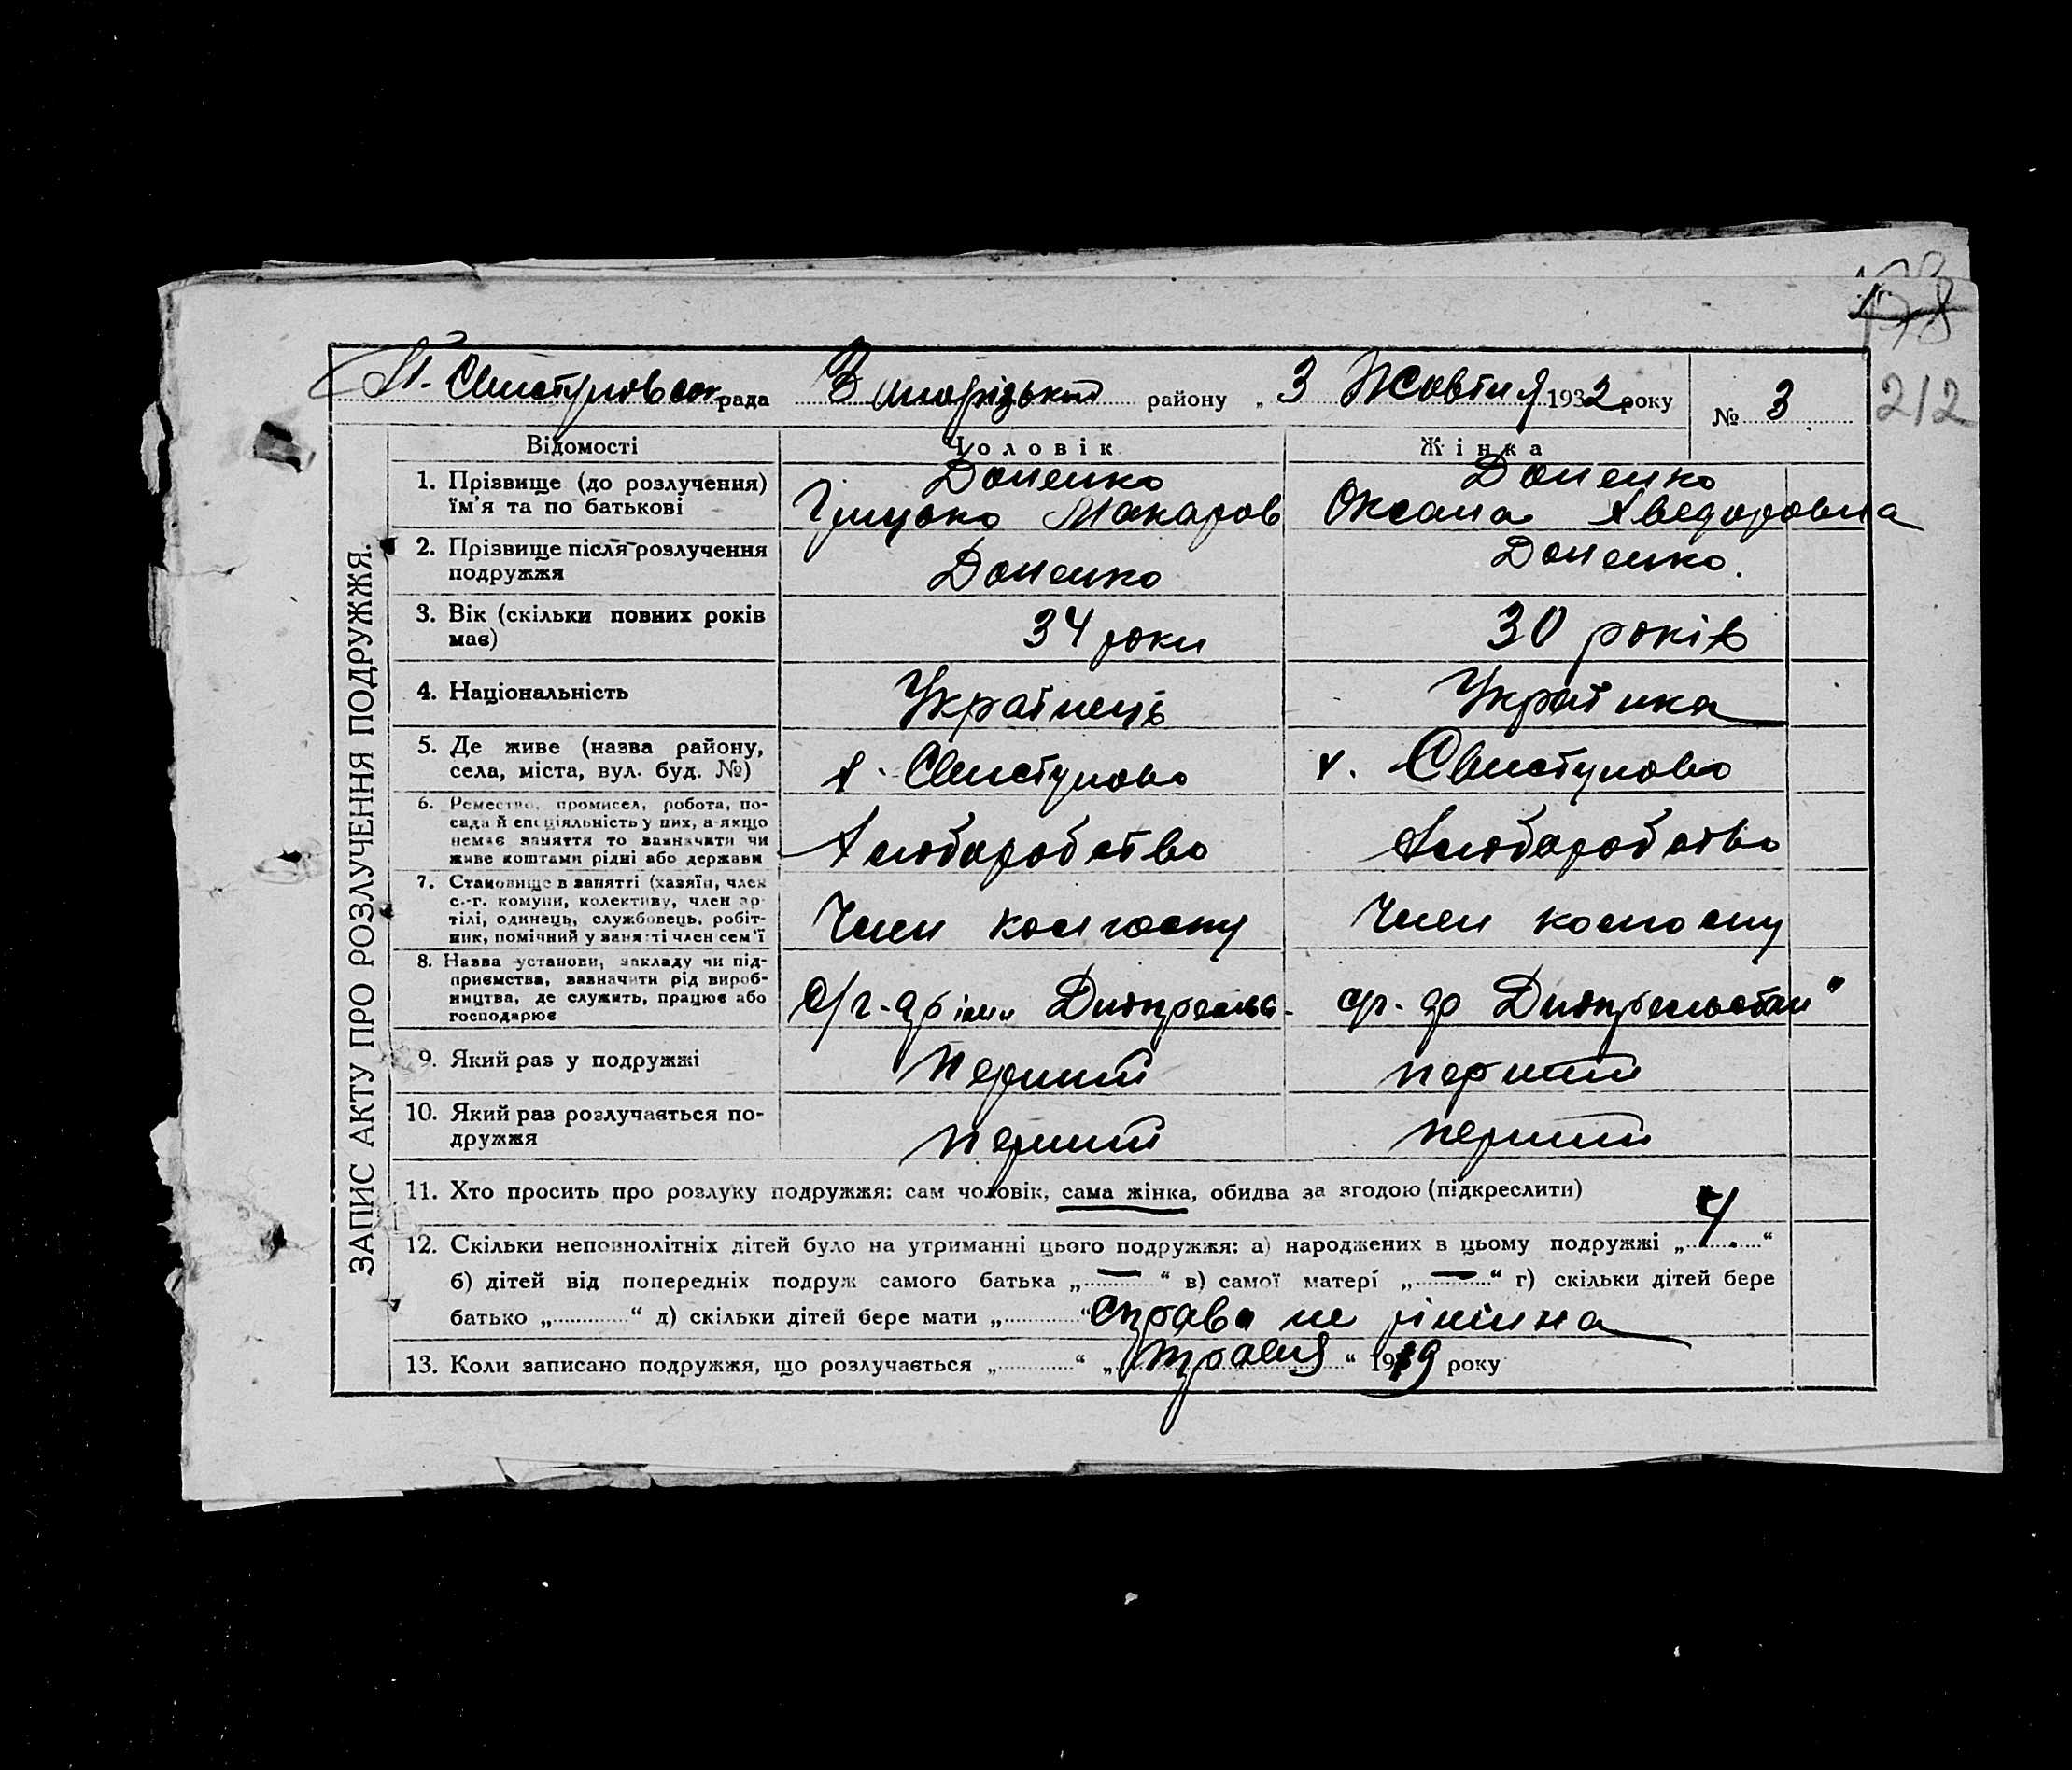 178
212
Свистуновськ рада Запорізький району „ 3 Жовтня 1932 року № 3
ЗАПИС АКТУ ПРО РОЗЛУЧЕННЯ ПОДРУЖЖЯ.
Відомості Чоловік Жінка
1. Прізвище (до розлучення) їм'я та по батькові
Доненко
Грицько Макаров
Доненко
Оксана Хведоровна
2. Прізвище після розлучення подружжя
Доненко Доненко.
3. Вік (скільки повних років має)
34 роки 30 років
4. Національність Українець Українка
5. Де живе (назва району,
села, міста, вул. буд. №)
х. Свистуново х. Свистуново
6. Ремество, промисел, робота, по-
сада й спеціяльність у них, а якщо
немає заняття то зазначити чи
живе коштами рідні або держави
Хлюборобство Хлюборобство
7. Становище в занятті (хазяїн, член
с.-г. комуни, колективу, член ар-
тілі, одинець, службовець, робіт-
ник, помічний у занятті член сем'ї
Член колгоспу Член колгоспу
8. Назва установи, закладу чи під-
приємства, зазначити рід вироб-
ництва, де служить, працює або
господарює
С/г. ар імені Дніпрельс- с/г. ар Дніпрельстан"
9. Який раз у подружжі перший перший
10. Який раз розлучається по-
дружжя
перший перший
11. Хто просить про розлуку подружжя: сам чоловік, сама жінка, обидва за згодою (підкреслити)
12. Скільки неповнолітніх дітей було на утриманні цього подружжя: а) народжених в цьому подружжі „ 4 “
б) дітей від попередніх подруж самого батька „ — “ в) самої матері „ — “ г) скільки дітей бере
батько „ “ д) скільки дітей бере мати „ “ справа не рішина
13. Коли записано подружжя, що розлучається „ “ „ травня “ 1919 року